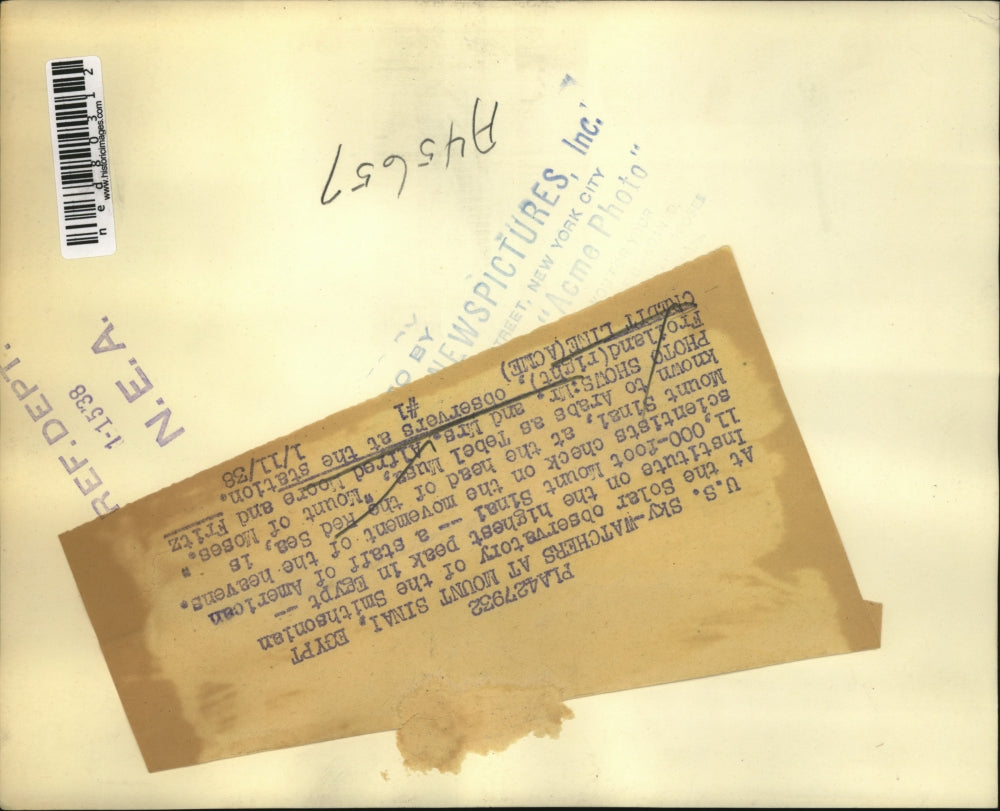 www.historicimages.com
n e d 8 0 3 1 2
A45657
REF. DEPT.
1-15 38
N. E. A.
BY
NEWSPICTURES, Inc.
STREET, NEW YORK CITY
"Acme Photo"
PLA427932
U.S. SKY-WATCHERS AT MOUNT SINAI, EGYPT
At the Solar observatory of the Smithsonian
Institute on the highest peak in Egypt --
11,000-foot Mount Sinai -- a staff of American
scientists check on the movement of the heavens.
Mount Sinai, at the head of the Red Sea, is
known to Arabs as Tebel Musa, the "Mount of Moses."
PHOTO SHOWS: Mr. and Mrs. Alfred Moore and Fritz
(right), observers at the station.
CREDIT LINE(ACME) #1 1/11/38